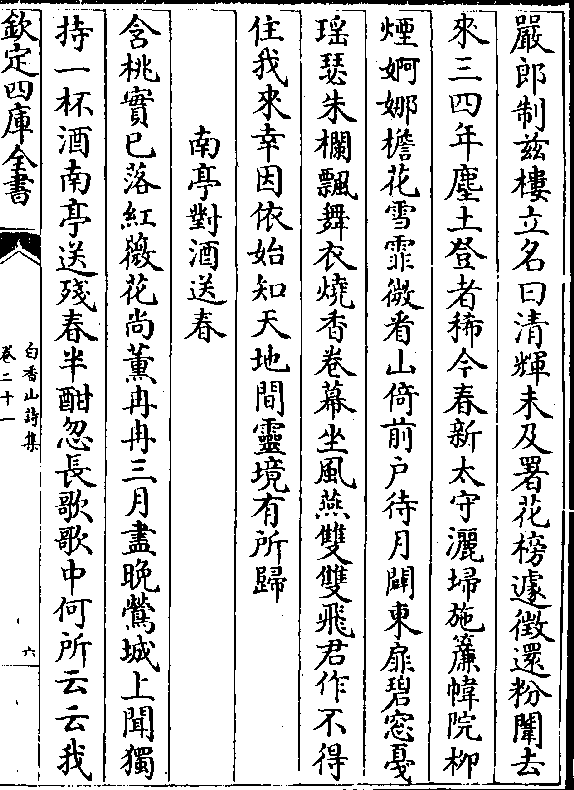 嚴郎制兹樓立名曰清輝未及署花榜遽徵還粉闈去
來三四年塵土登者稀今春新太守灑埽施簾幃院柳
煙婀娜檐花雪霏微看山倚前户待月闢東扉碧窓戛
瑶瑟朱欄飄舞衣燒香卷幕坐風燕雙雙飛君作不得
住我來幸因依始知天地間靈境有所歸
南亭對酒送春
含桃實已落紅薇花尚薰冉冉三月盡晚鶯城上聞獨
持一杯酒南亭送殘春半酣忽長歌歌中何所云云我
欽定四庫全書
白香山詩集
卷二十一
六